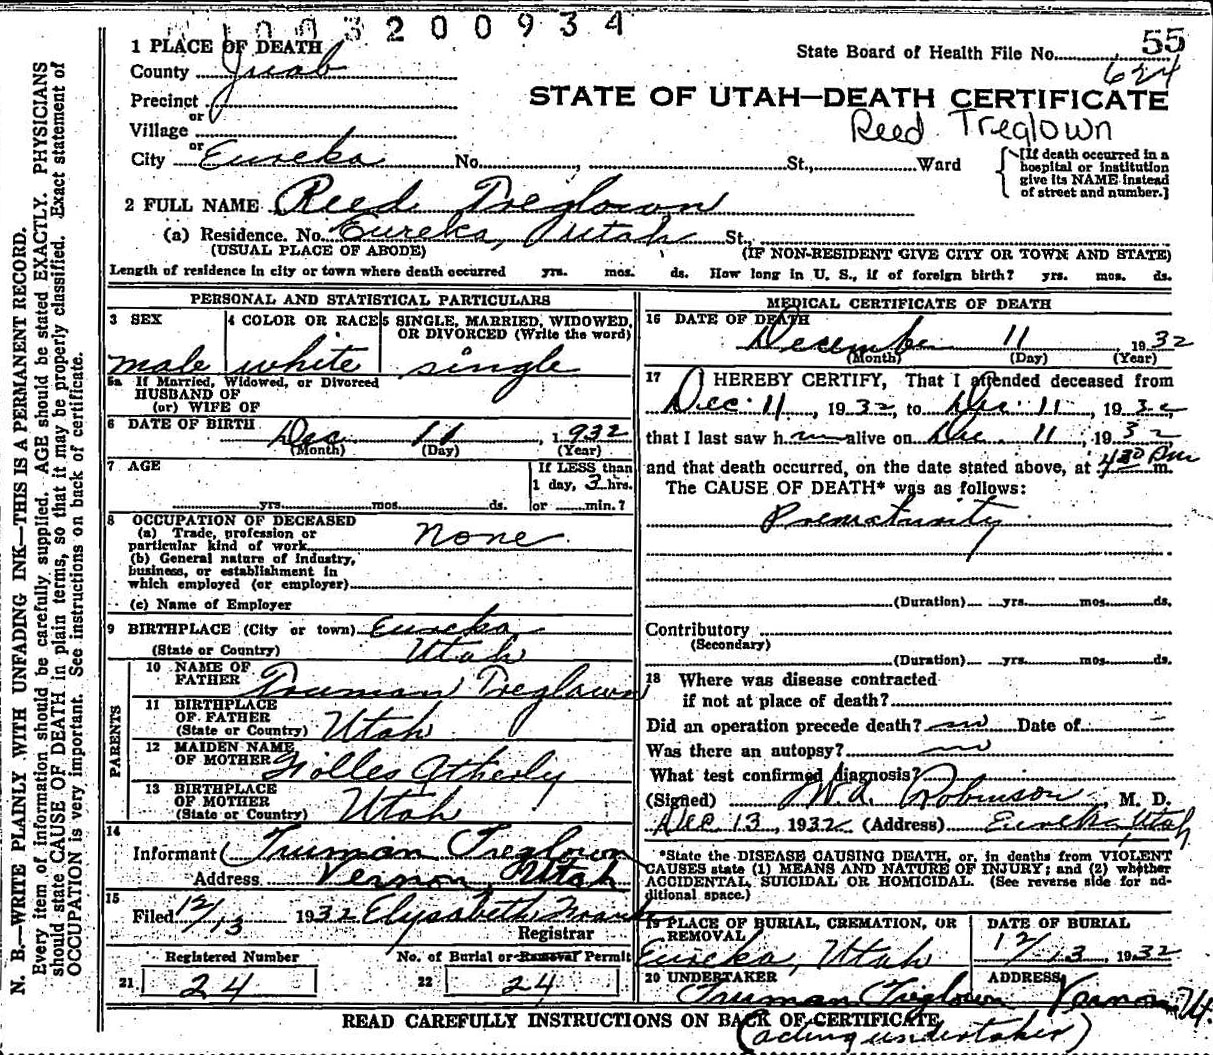 1003200934
1 PLACE OF DEATH
State Board of Health File No. 55
County Juab
624
Precinct
or
STATE OF UTAH—DEATH CERTIFICATE
Village
Reed Treglown
or
City Eureka No. , St., Ward
[If death occurred in a
hospital or institution
give its NAME instead
of street and number.]
2 FULL NAME Reed Treglown
(a) Residence. No. Eureka, Utah St.,
(USUAL PLACE OF ABODE) (IF NON-RESIDENT GIVE CITY OR TOWN AND STATE)
Length of residence in city or town where death occurred yrs. mos. ds. How long in U. S., if of foreign birth? yrs. mos. ds.
PERSONAL AND STATISTICAL PARTICULARS
3 SEX
male
4 COLOR OR RACE
white
5 SINGLE, MARRIED, WIDOWED,
OR DIVORCED (Write the word)
single
5a If Married, Widowed, or Divorced
HUSBAND OF
(or) WIFE OF
6 DATE OF BIRTH Dec 11, 1932
(Month) (Day) (Year)
7 AGE
yrs. mos. ds.
If LESS than
1 day, 3 hrs.
or min.?
8 OCCUPATION OF DECEASED
(a) Trade, profession or
particular kind of work None
(b) General nature of industry,
business, or establishment in
which employed (or employer)
(c) Name of Employer
9 BIRTHPLACE (City or town) Eureka
(State or Country) Utah
PARENTS
10 NAME OF
FATHER Truman Treglown
11 BIRTHPLACE
OF FATHER
(State or Country) Utah
12 MAIDEN NAME
OF MOTHER Atherly
13 BIRTHPLACE
OF MOTHER
(State or Country) Utah
14
Informant Truman Treglown
Address Vernon, Utah
15
Filed 12/13 1932 Elysabeth
Registrar
Registered Number
21 24
No. of Burial or Removal Permit
22 24
MEDICAL CERTIFICATE OF DEATH
16 DATE OF DEATH
December 11 1932
(Month) (Day) (Year)
17 I HEREBY CERTIFY, That I attended deceased from
Dec. 11, 1932, to Dec. 11, 1932,
that I last saw him alive on Dec. 11, 1932
and that death occurred, on the date stated above, at 430 Pm m.
The CAUSE OF DEATH* was as follows:
Prematurity
(Duration) yrs. mos. ds.
Contributory
(Secondary)
(Duration) yrs. mos. ds.
18 Where was disease contracted
if not at place of death?
Did an operation precede death? no Date of
Was there an autopsy? no
What test confirmed diagnosis?
(Signed) Robinson, M. D.
Dec 13, 1932 (Address) Eureka, Utah
*State the DISEASE CAUSING DEATH, or, in deaths from VIOLENT
CAUSES state (1) MEANS AND NATURE OF INJURY; and (2) whether
ACCIDENTAL, SUICIDAL OR HOMICIDAL. (See reverse side for ad-
ditional space.)
19 PLACE OF BURIAL, CREMATION, OR
REMOVAL
Eureka, Utah
DATE OF BURIAL
12/13, 1932
20 UNDERTAKER
Truman Treglown
ADDRESS
Vernon, Ut.
READ CAREFULLY INSTRUCTIONS ON BACK OF CERTIFICATE
(acting undertaker)
N. B.—WRITE PLAINLY WITH UNFADING INK—THIS IS A PERMANENT RECORD.
Every item of information should be carefully supplied. AGE should be stated EXACTLY. PHYSICIANS
should state CAUSE OF DEATH in plain terms, so that it may be properly classified. Exact statement of
OCCUPATION is very important. See instructions on back of certificate.